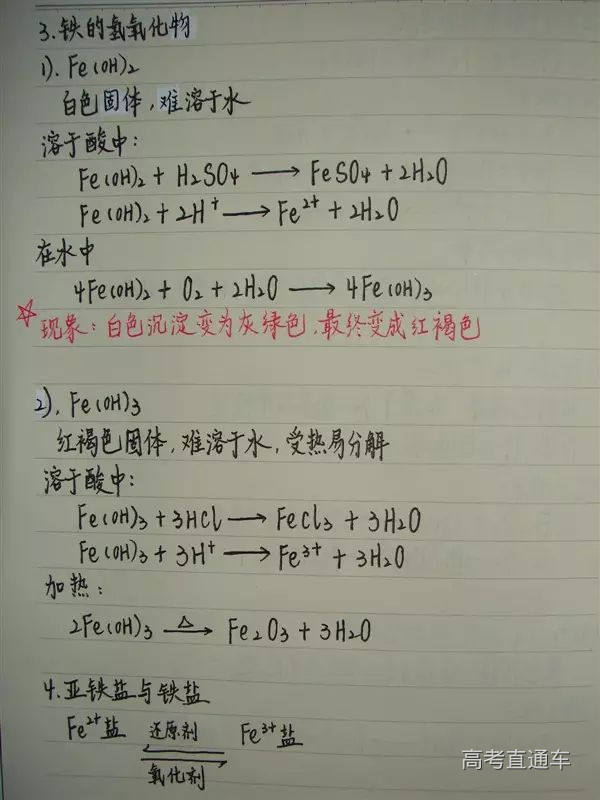 3.铁的氢氧化物
1). Fe(OH)2
白色固体,难溶于水
溶于酸中:
Fe(OH)2 + H2SO4 ⟶ FeSO4 + 2H2O
Fe(OH)2 + 2H⁺ ⟶ Fe²⁺ + 2H2O
在水中
4Fe(OH)2 + O2 + 2H2O ⟶ 4Fe(OH)3
☆现象:白色沉淀变为灰绿色,最终变成红褐色
2), Fe(OH)3
红褐色固体,难溶于水,受热易分解
溶于酸中:
Fe(OH)3 + 3HCl ⟶ FeCl3 + 3H2O
Fe(OH)3 + 3H⁺ ⟶ Fe³⁺ + 3H2O
加热:
2Fe(OH)3 △⟶ Fe2O3 + 3H2O
4.亚铁盐与铁盐
Fe²⁺盐 还原剂 Fe³⁺盐
氧化剂
高考直通车